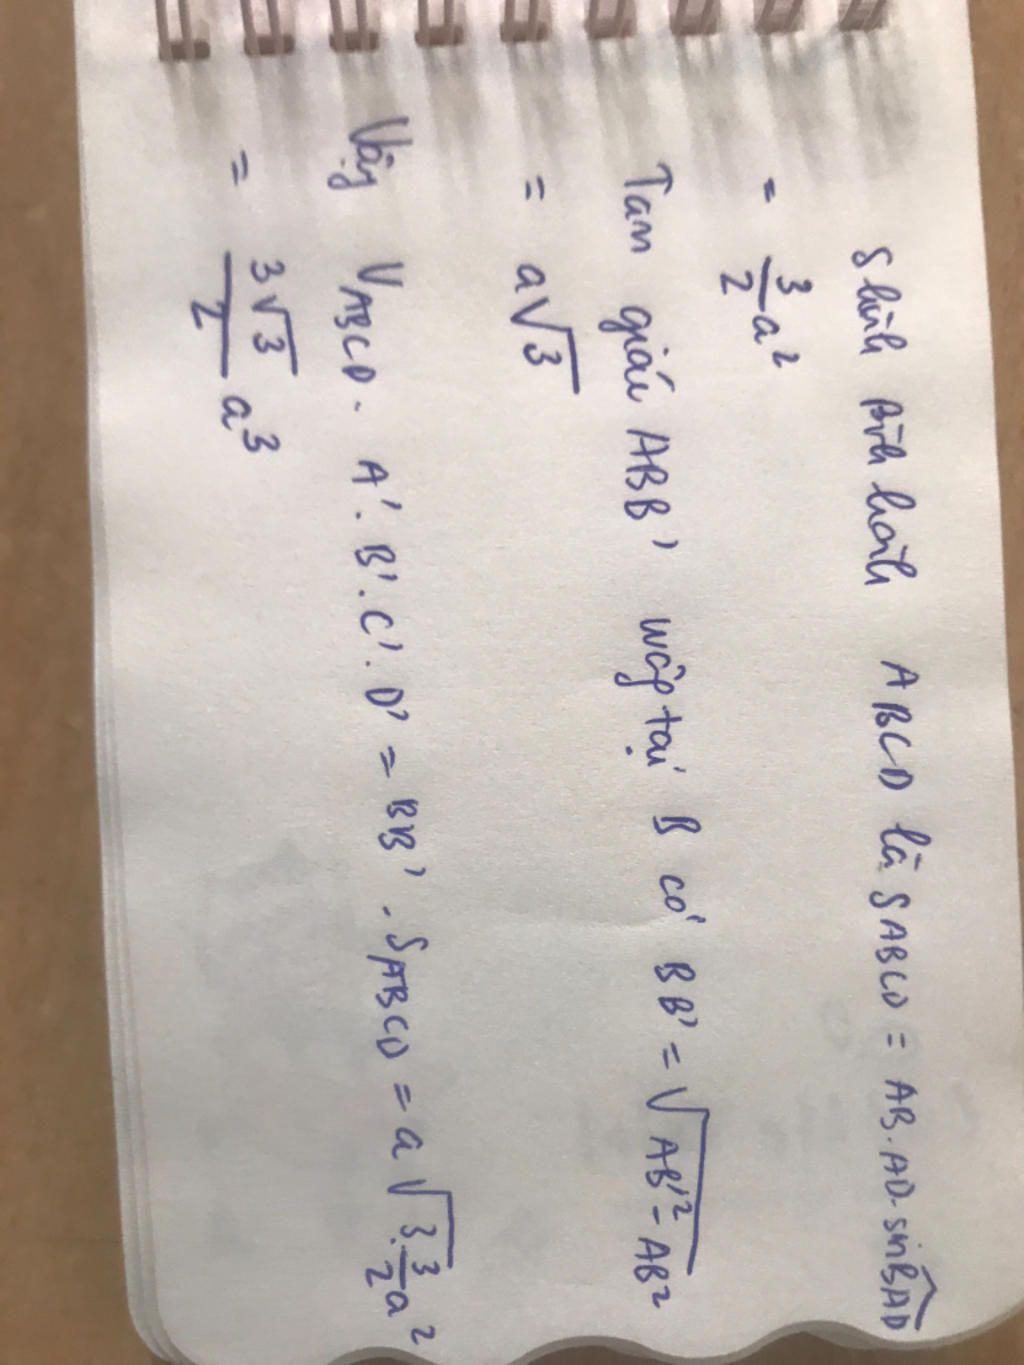 S hình bình hành ABCD là SABCD = AB.AD.sin BAD
= 3/2 a²
Tam giác ABB' vuông tại B có BB' = √(AB'² - AB²
= a√3
Vậy VABCD. A'.B'.C'.D' = BB'.SABCD = a√3.3/2 a²
= 3√3/2 a³